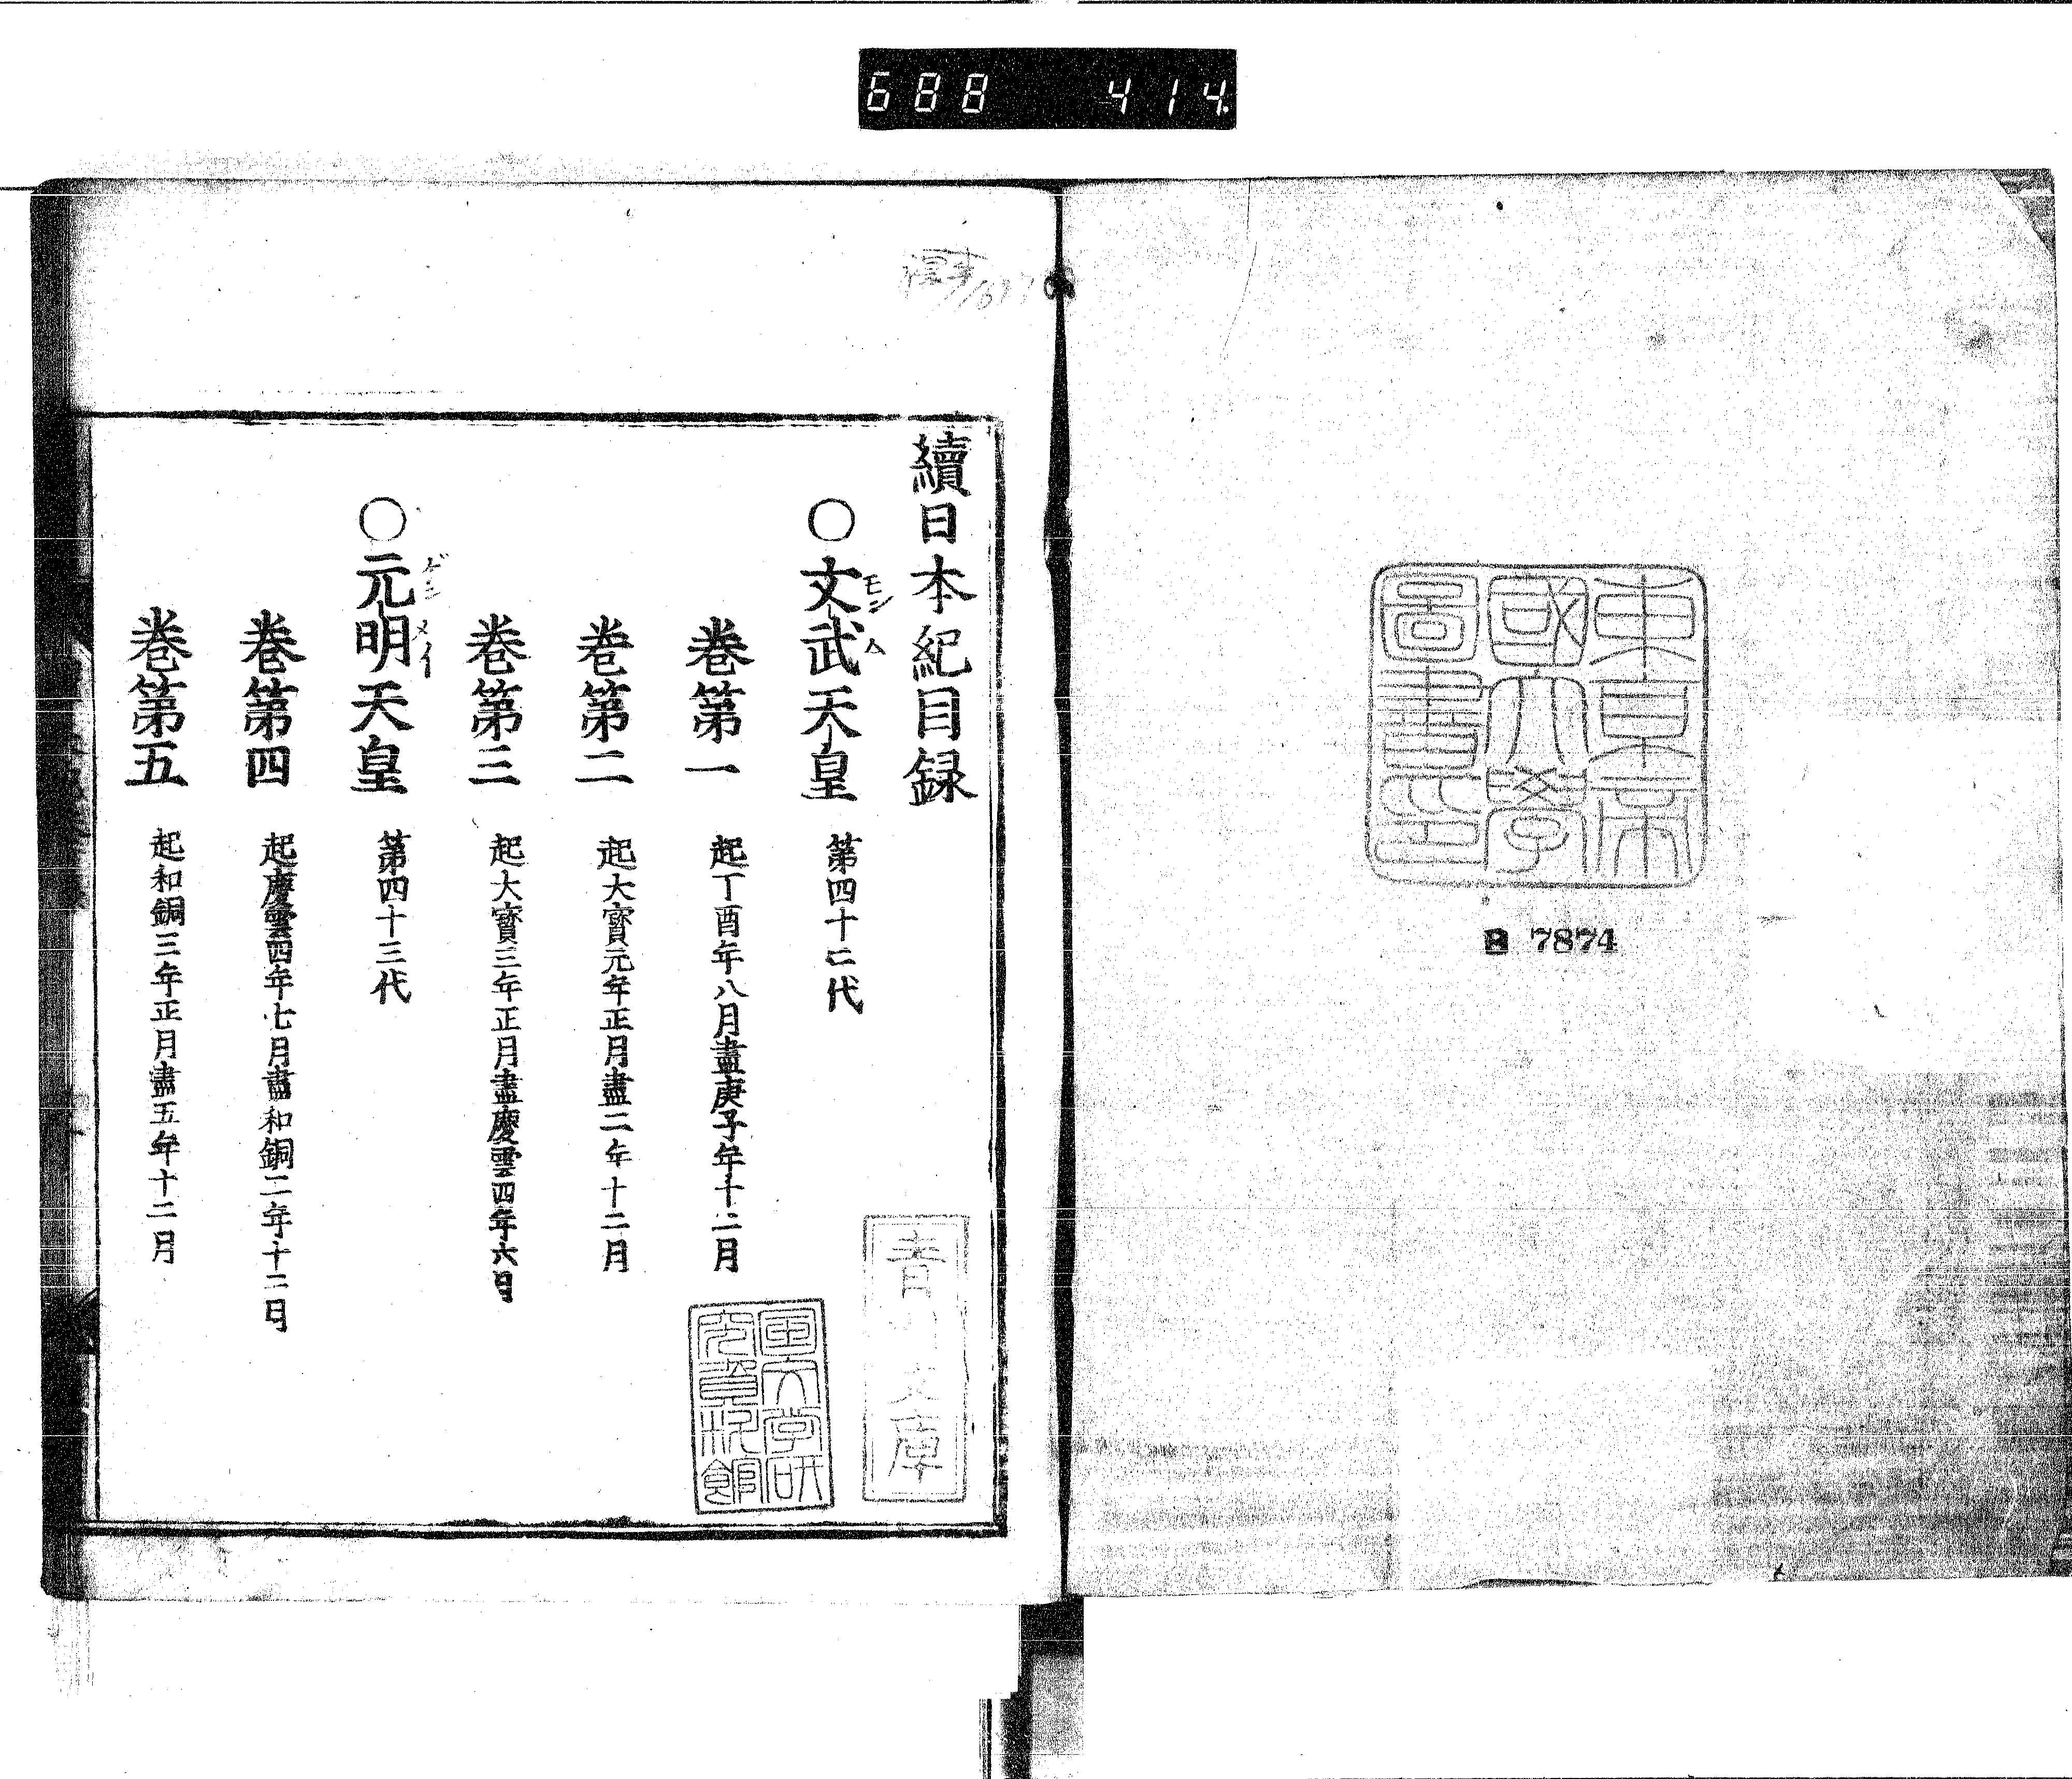 688 414
東京帝
國大學
圖書印
7874
續日本紀目録
〇文武天皇 第四十二代
モン ム
巻第一 起丁酉年八月盡庚子年十二月
巻第二 起大寶元年正月盡二年十二月
巻第三 起大寶三年正月盡慶雲四年六月
〇元明天皇 第四十三代
ゲン メイ
巻第四 起慶雲四年七月盡和銅二年十二月
巻第五 起和銅三年正月盡五年十二月
文庫
国文学研
究資料館